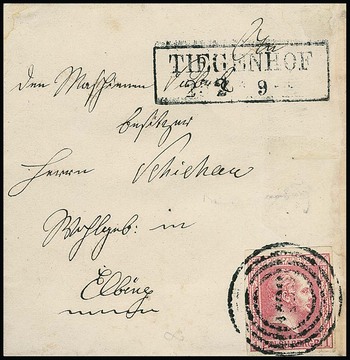 TIEGENHOF
2 9
den Maschinen
besitzer
Herrn Schichau
Wohlgeb: in
Elbing